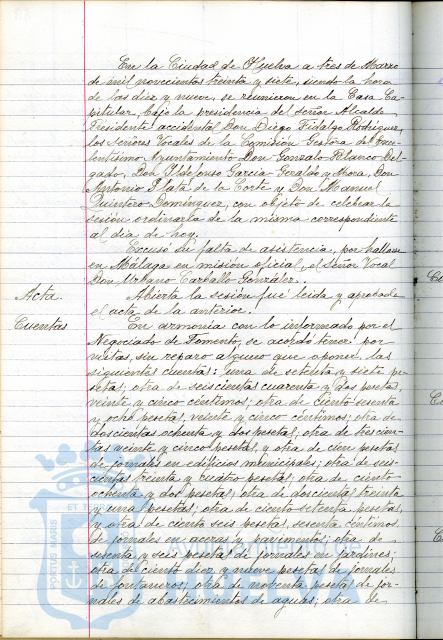 En la Ciudad de Huelva a tres de Marzo
de mil novecientos treinta y siete, siendo la hora
de las diez y nueve, se reunieron en la Casa Ca-
pitular, bajo la presidencia del Señor Alcalde
Presidente accidental Don Diego Fidalgo Rodríguez,
los Señores Vocales de la Comisión Gestora del Exce-
lentísimo Ayuntamiento Don Gonzalo Blanco Del-
gado, Don Ildefonso García Geraldo y Mora, Don
Antonio Plata de la Corte y Don Manuel
Quintero Domínguez, con objeto de celebrar la
sesión ordinaria de la misma correspondiente
al día de hoy.
Excusó su falta de asistencia, por hallarse
en Málaga en misión oficial, el Señor Vocal
Don Urbano Carballo González.
Acta. Abierta la sesión fué leida y aprobada
el acta de la anterior.
Cuentas En armonia con lo informado por el
Negociado de Fomento, se acordó tener por
vistas, sin reparo alguno que oponer, las
siguientes cuentas: una de setenta y siete pe-
setas; otra de seiscientas cuarenta y dos pesetas,
veinte y cinco céntimos; otra de ciento sesenta
y ocho pesetas, veinte y cinco céntimos; otra de
doscientas ochenta y dos pesetas; otra de trescien-
tas veinte y cinco pesetas, y otra de cien pesetas
de jornales en edificios municipales; otra de
cientas treinta y cuatro pesetas; otra de ciento
ochenta y dos pesetas; otra de doscientas treinta
y una pesetas; otra de ciento setenta pesetas,
y otra de ciento seis pesetas, sesenta céntimos
de jornales en aceras y pavimentos; otra de
setenta y seis pesetas de jornales en jardines;
otra de ciento diez y nueve pesetas de jornales
de fontaneros; otra de noventa pesetas de jor-
nales de abastecimientos de aguas; otra de
PORTUS MARIS
ET T
HUELVA